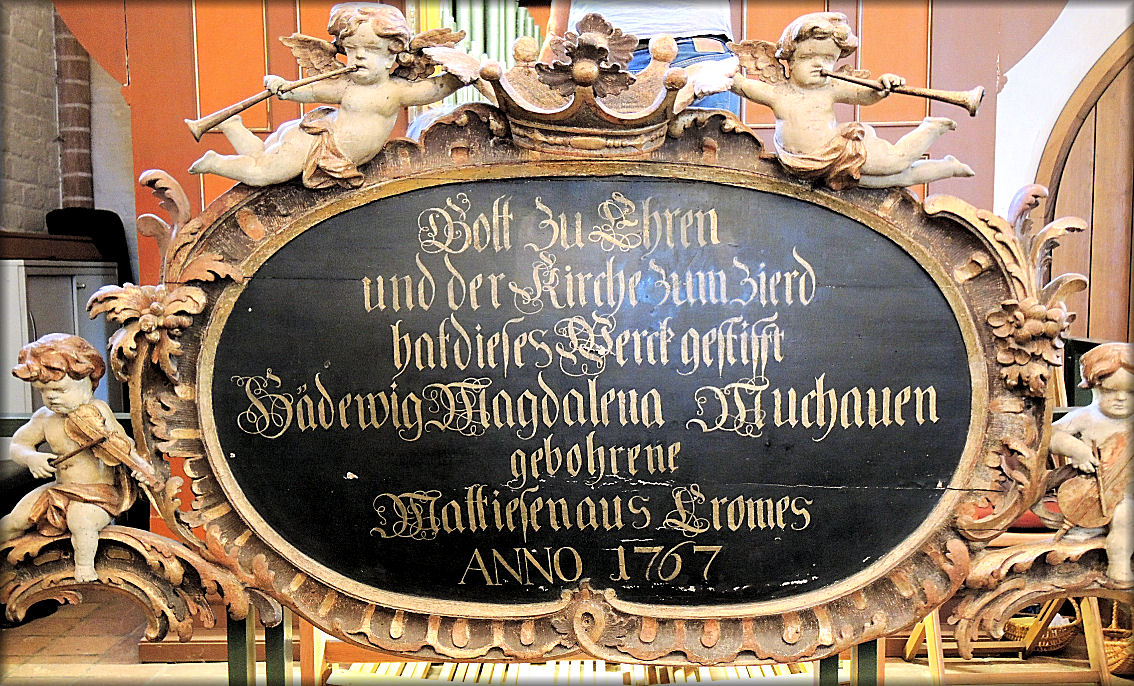 Gott zu Ehren
und der Kirche zum zierd
hat dieses Werck gestifft
Hädewig Magdalena Muchauen
gebohrene
Mattiesen aus Cromes
ANNO 1767